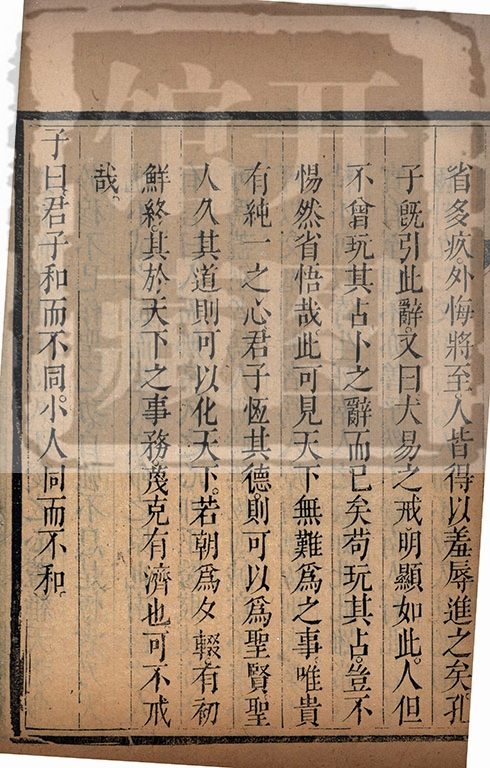 省多疚。外悔將至。人皆得以羞辱進之矣。孔
子旣引此辭。又曰大易之戒。明顯如此。人但
不曾玩其占卜之辭而已矣。苟玩其占。豈不
惕然省悟哉。此可見天下無難爲之事。唯貴
有純一之心。君子恆其德。則可以爲聖賢。聖
人久其道。則可以化天下。若朝爲夕輟。有初
鮮終。其於天下之事。務蔑克有濟也。可不戒
哉。
子曰。君子和而不同。小人同而不和。